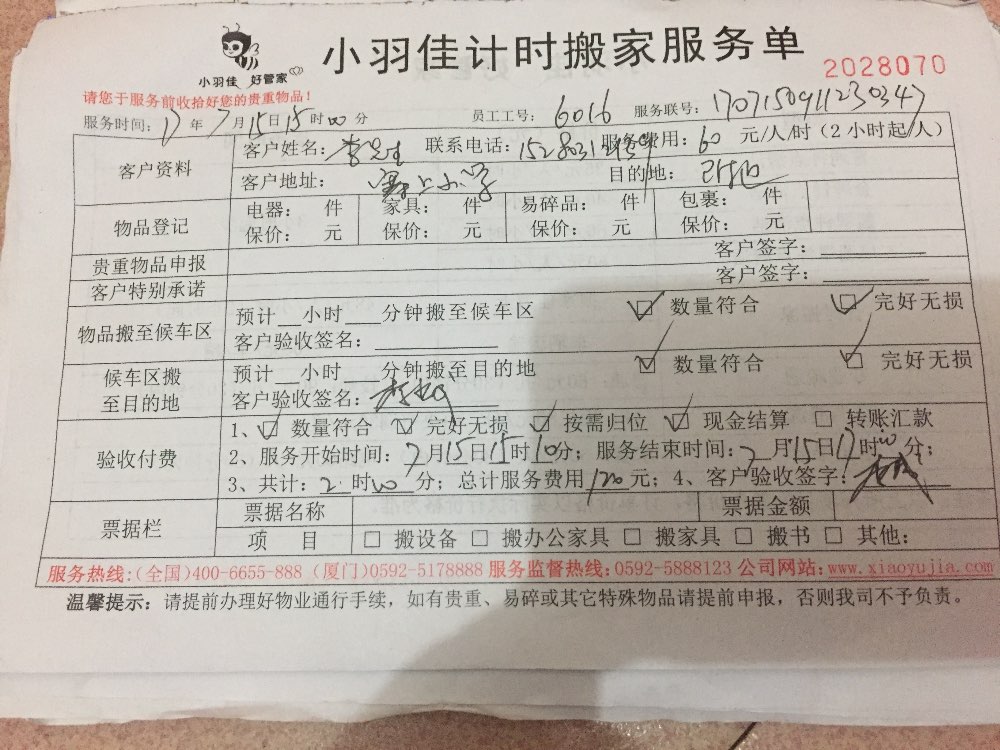 小羽佳计时搬家服务单
小羽佳 好管家
2028070
请您于服务前收拾好您的贵重物品！
服务时间：17年7月15日15时00分 员工工号：6016 服务联号：1707150911230347
客户资料 客户姓名： 联系电话： 服务费用：60 元/人/时（2小时起/人）
客户地址： 目的地：
物品登记 电器： 件 家具： 件 易碎品： 件 包裹： 件
保价： 元 保价： 元 保价： 元 保价： 元
贵重物品申报 客户签字：
客户特别承诺 客户签字：
物品搬至候车区 预计__小时___分钟搬至候车区 ☑ 数量符合 ☑ 完好无损
客户验收签名：
候车区搬至目的地 预计__小时___分钟搬至目的地 ☑ 数量符合 ☑ 完好无损
客户验收签名：
验收付费 1、☑ 数量符合 ☑ 完好无损 ☑ 按需归位 ☑ 现金结算 □ 转账汇款
2、服务开始时间：7月15日15时10分；服务结束时间：7月15日17时00分；
3、共计：2时00分；总计服务费用120元；4、客户验收签字：
票据栏 票据名称 票据金额
项 目 □ 搬设备 □ 搬办公家具 □ 搬家具 □ 搬书 □ 其他：
服务热线:(全国)400-6655-888 (厦门)0592-5178888 服务监督热线:0592-5888123 公司网站:www.xiaoyujia.com
温馨提示：请提前办理好物业通行手续，如有贵重、易碎或其它特殊物品请提前申报，否则我司不予负责。